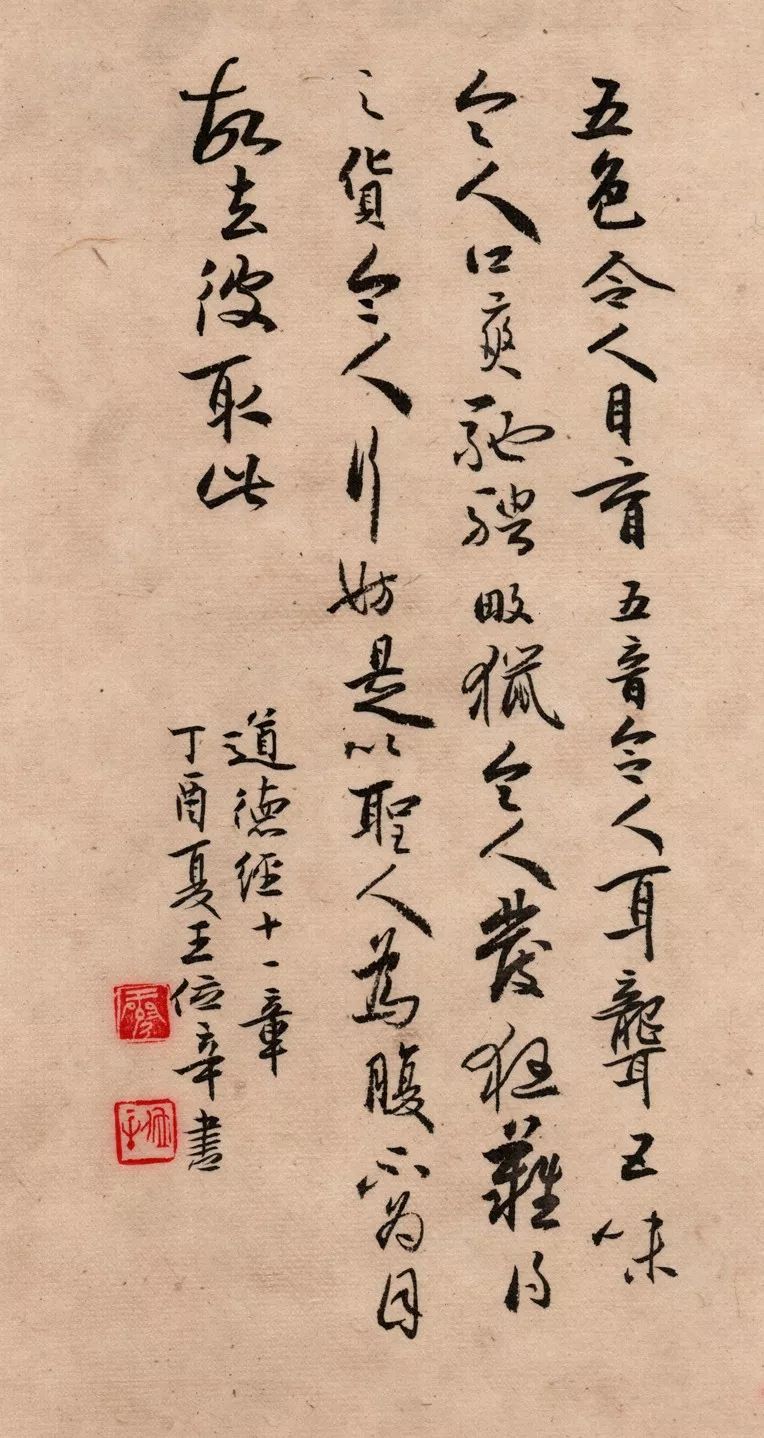 五色令人目盲五音令人耳聾五味
令人口爽馳騁畋獵令人發狂難得
之貨令人行妨是以聖人為腹不为目
故去彼取此
道德經十一章
丁酉夏王位辛書